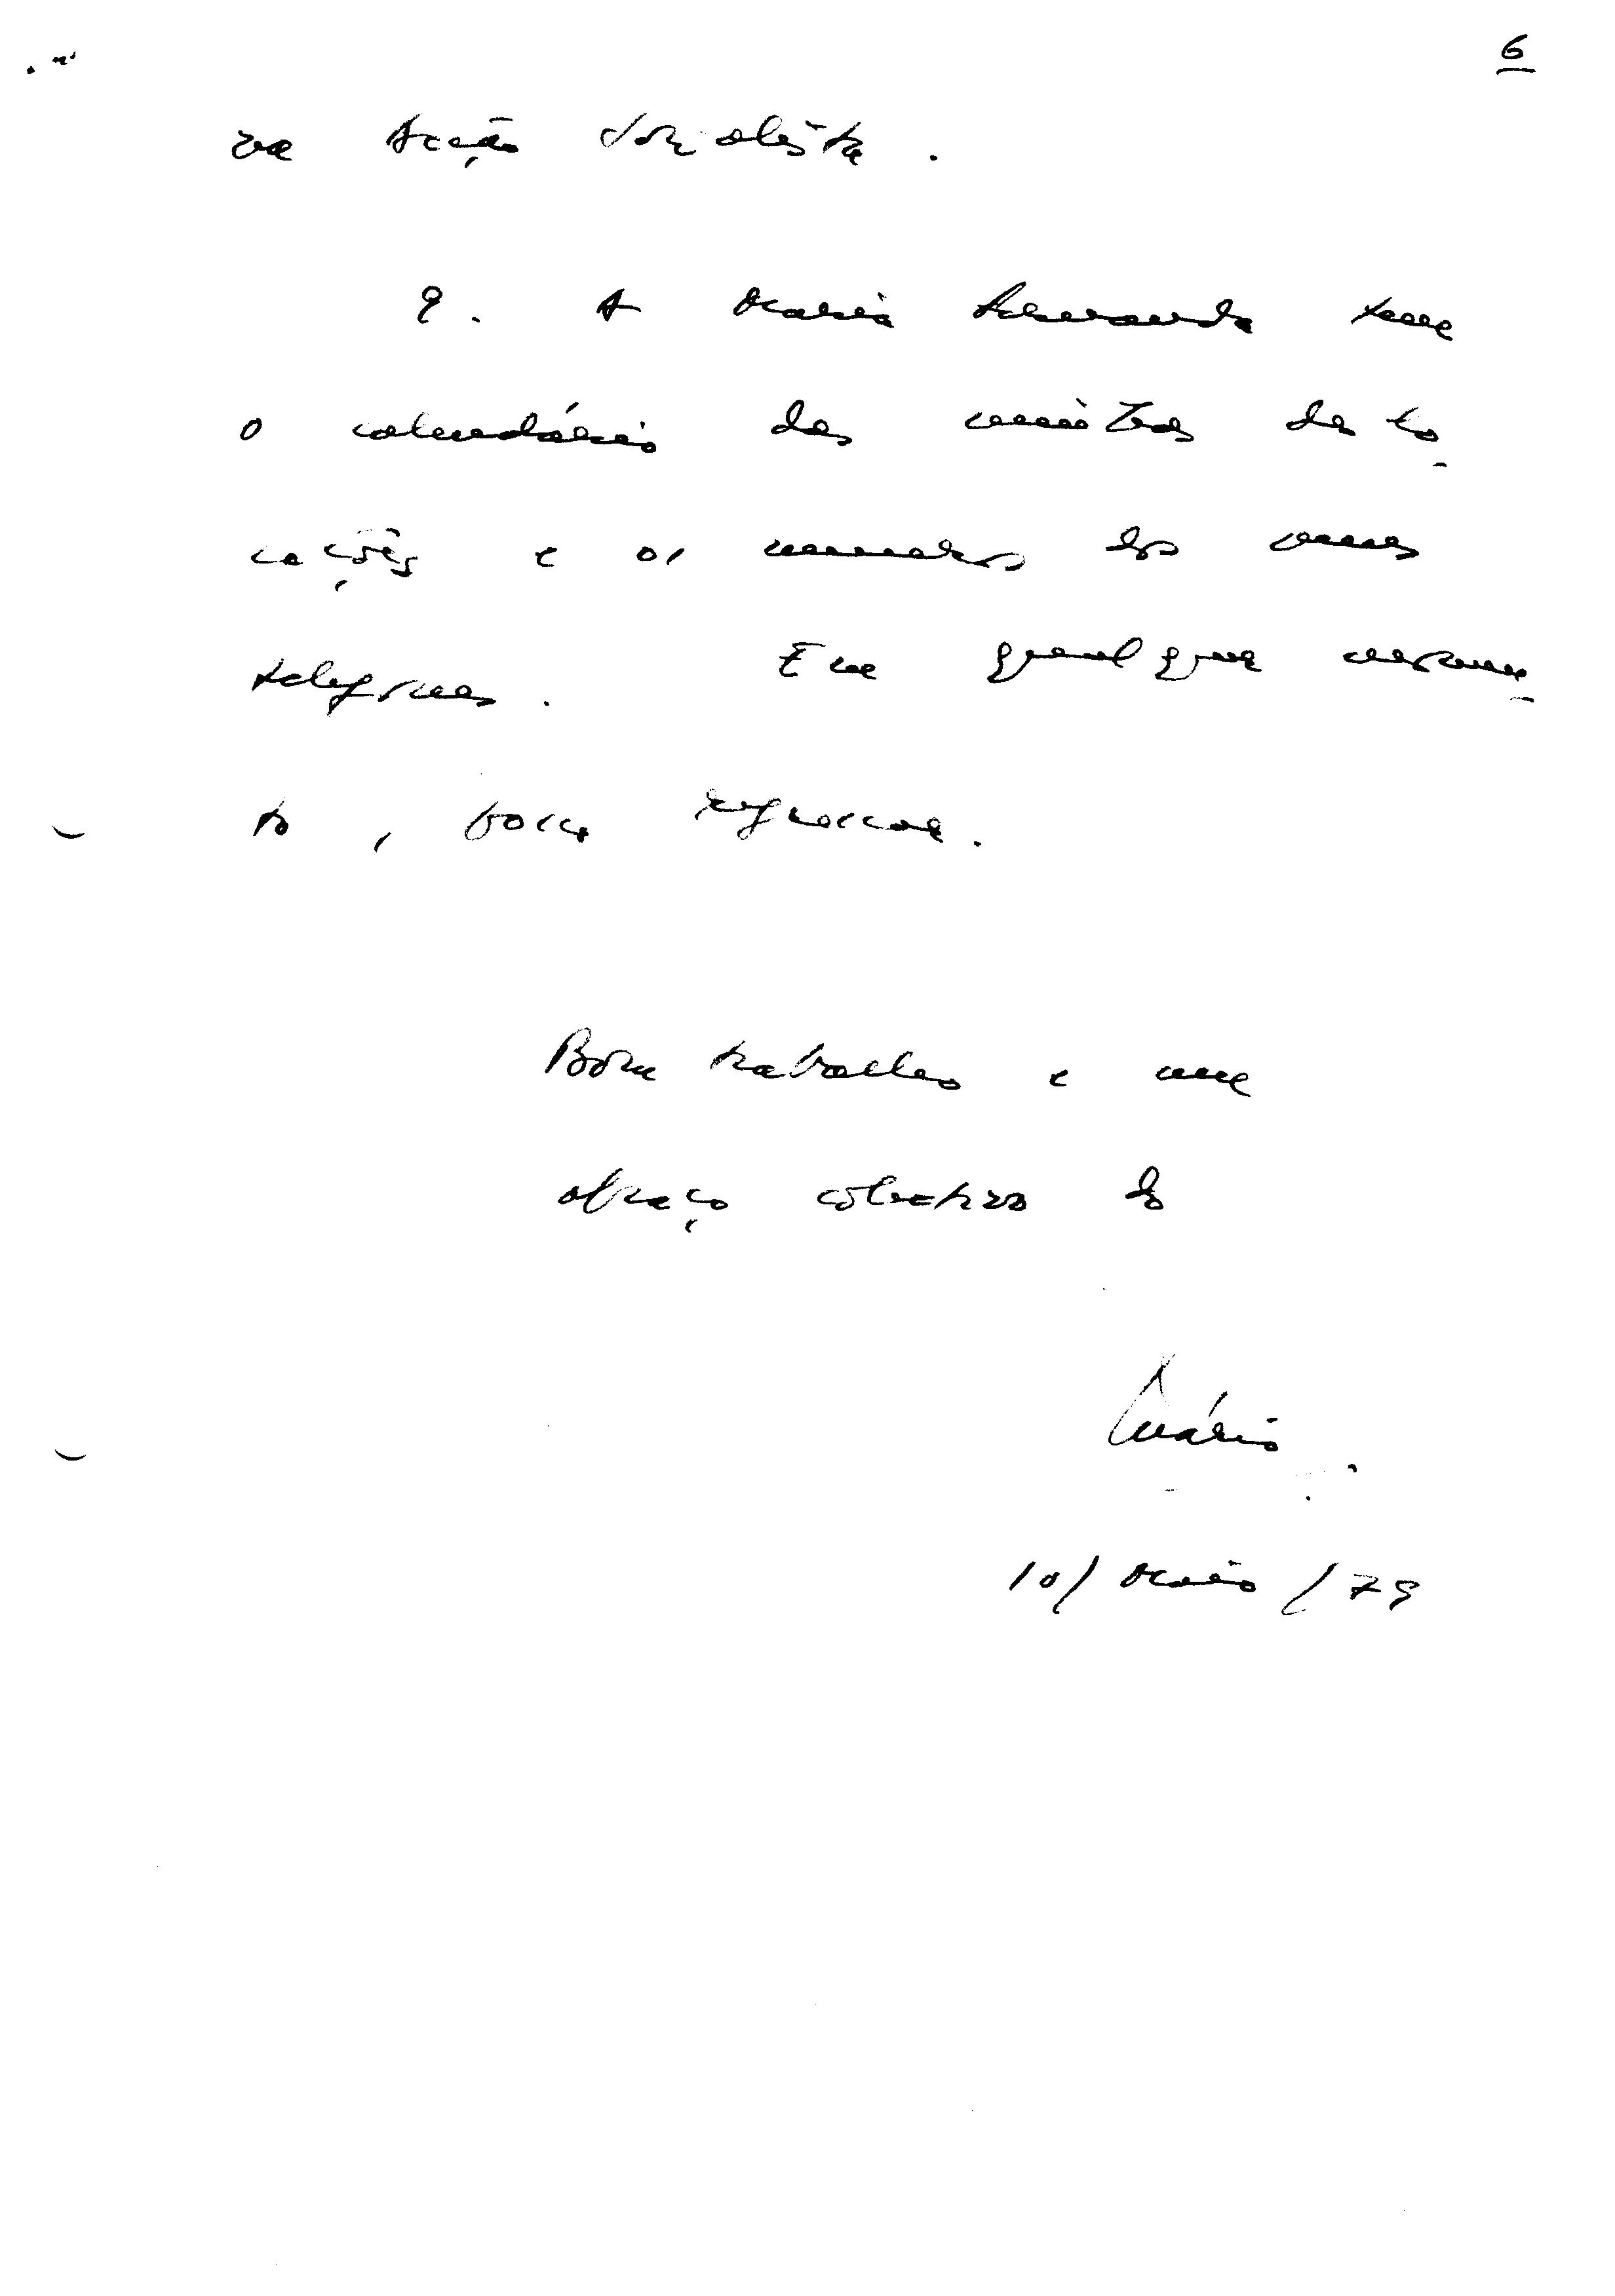 6
na Acção Socialista.
9. A Maria Fernanda tem
o calendário das minhas deslo-
cações e os numeros dos meus
telefones. Em qualquer momen-
to, posso regressar.
Bom trabalho e um
abraço colectivo do
Mário
10/Maio/79